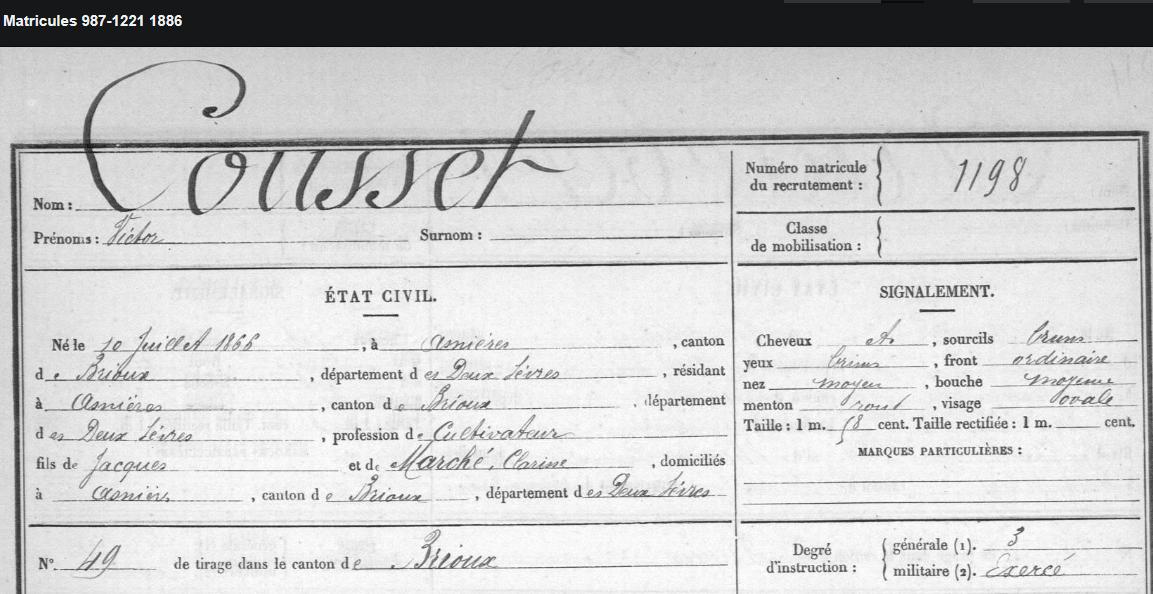 Matricules 987-1221 1886
Cousset
Nom :
Numéro matricule du recrutement : 1198
Prénoms : Victor Surnom :
Classe de mobilisation :
ÉTAT CIVIL.
Né le 10 Juillet 1866, à Asnières, canton
de Brioux, département des Deux Sèvres, résidant
à Asnières, canton de Brioux, département
des Deux Sèvres, profession de Cultivateur
fils de Jacques et de Marché, Clarisse, domiciliés
à Asnières, canton de Brioux, département des Deux Sèvres
N° 49 de tirage dans le canton de Brioux
SIGNALEMENT.
Cheveux et, sourcils bruns
yeux bruns, front ordinaire
nez moyen, bouche moyenne
menton rond, visage ovale
Taille : 1 m. cent. Taille rectifiée : 1 m. cent.
MARQUES PARTICULIÈRES :
Degré d'instruction : générale (1). 3
militaire (2). Exercé